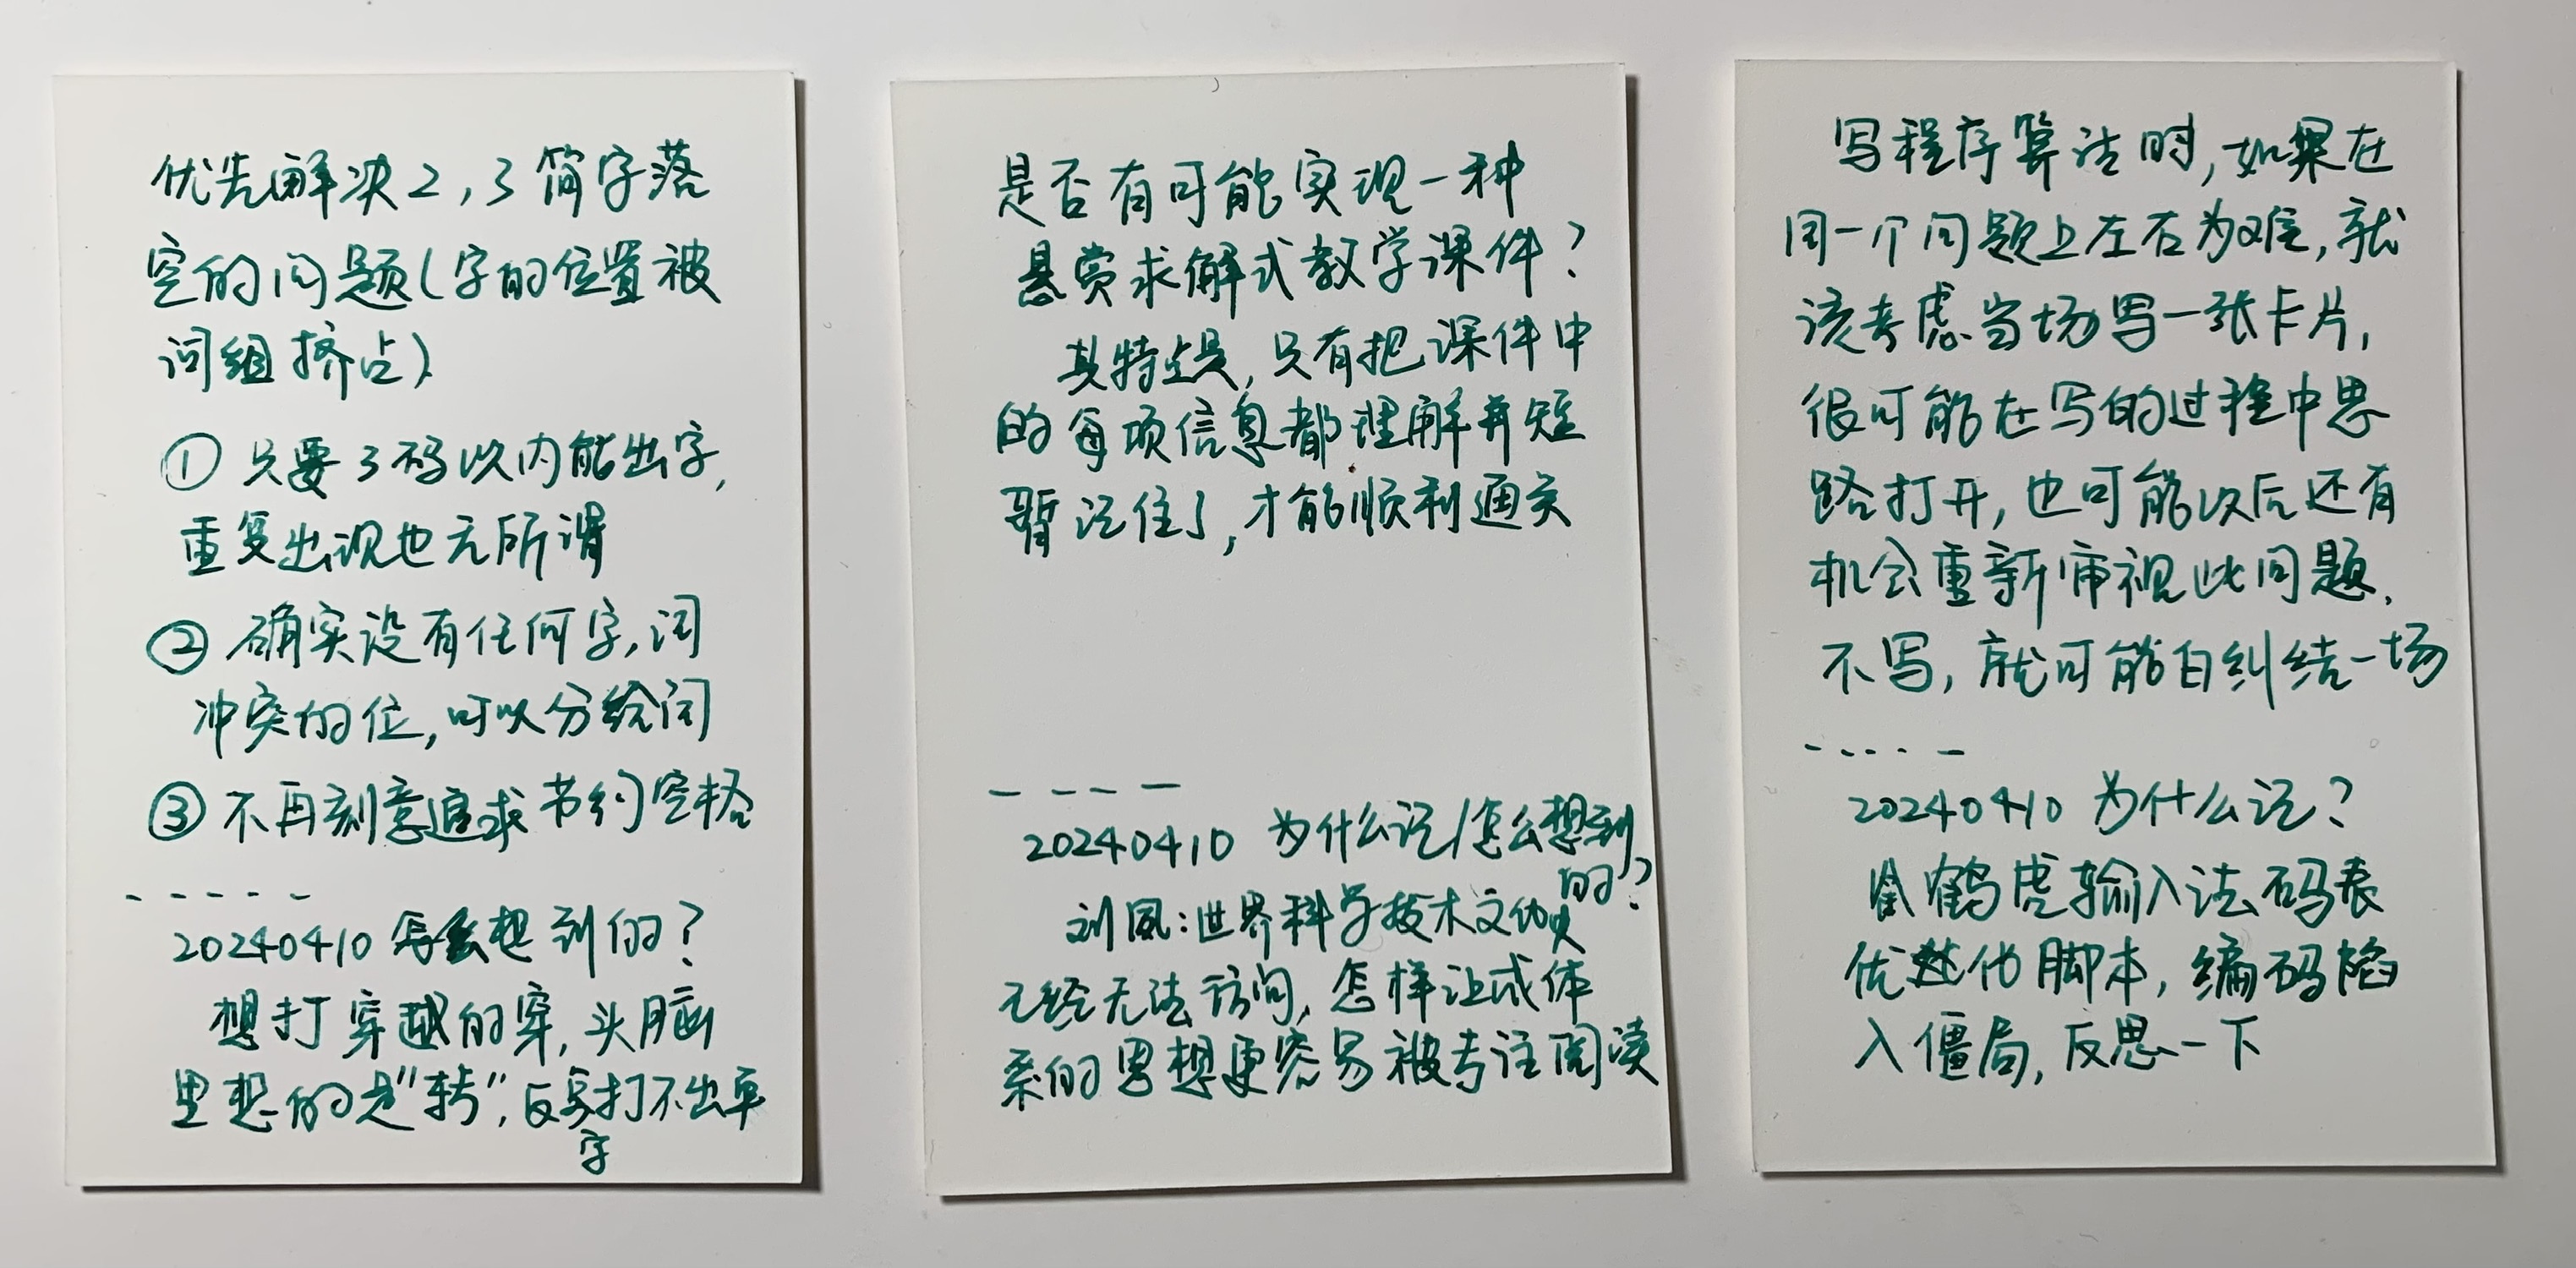 优先解决2,3简字落
空的问题(字的位置被
词组挤占)
① 只要3码以内能出字,
重复出现也无所谓
② 确实没有任何字,词
冲突的位,可以分给词
③ 不再刻意追求节约空格
-----
20240410 怎么想到的?
想打穿越的穿,头脑
里想的是"转",反复打不出单
字
是否有可能实现一种
悬赏求解式教学课件?
其特点是,只有把课件中
的每项信息都理解并短
暂记住了,才能顺利通关
----
20240410 为什么记/怎么想到
的?
刘夙:世界科学技术文化史
已经无法访问,怎样让成体
系的思想更容易被专注阅读
写程序算法时,如果在
同一个问题上左右为难,就
该考虑当场写一张卡片,
很可能在写的过程中思
路打开,也可能以后还有
机会重新审视此问题.
不写,就可能白纠结一场
-----
20240410 为什么记?
鹤虎输入法码表
优化脚本,编码陷
入僵局,反思一下